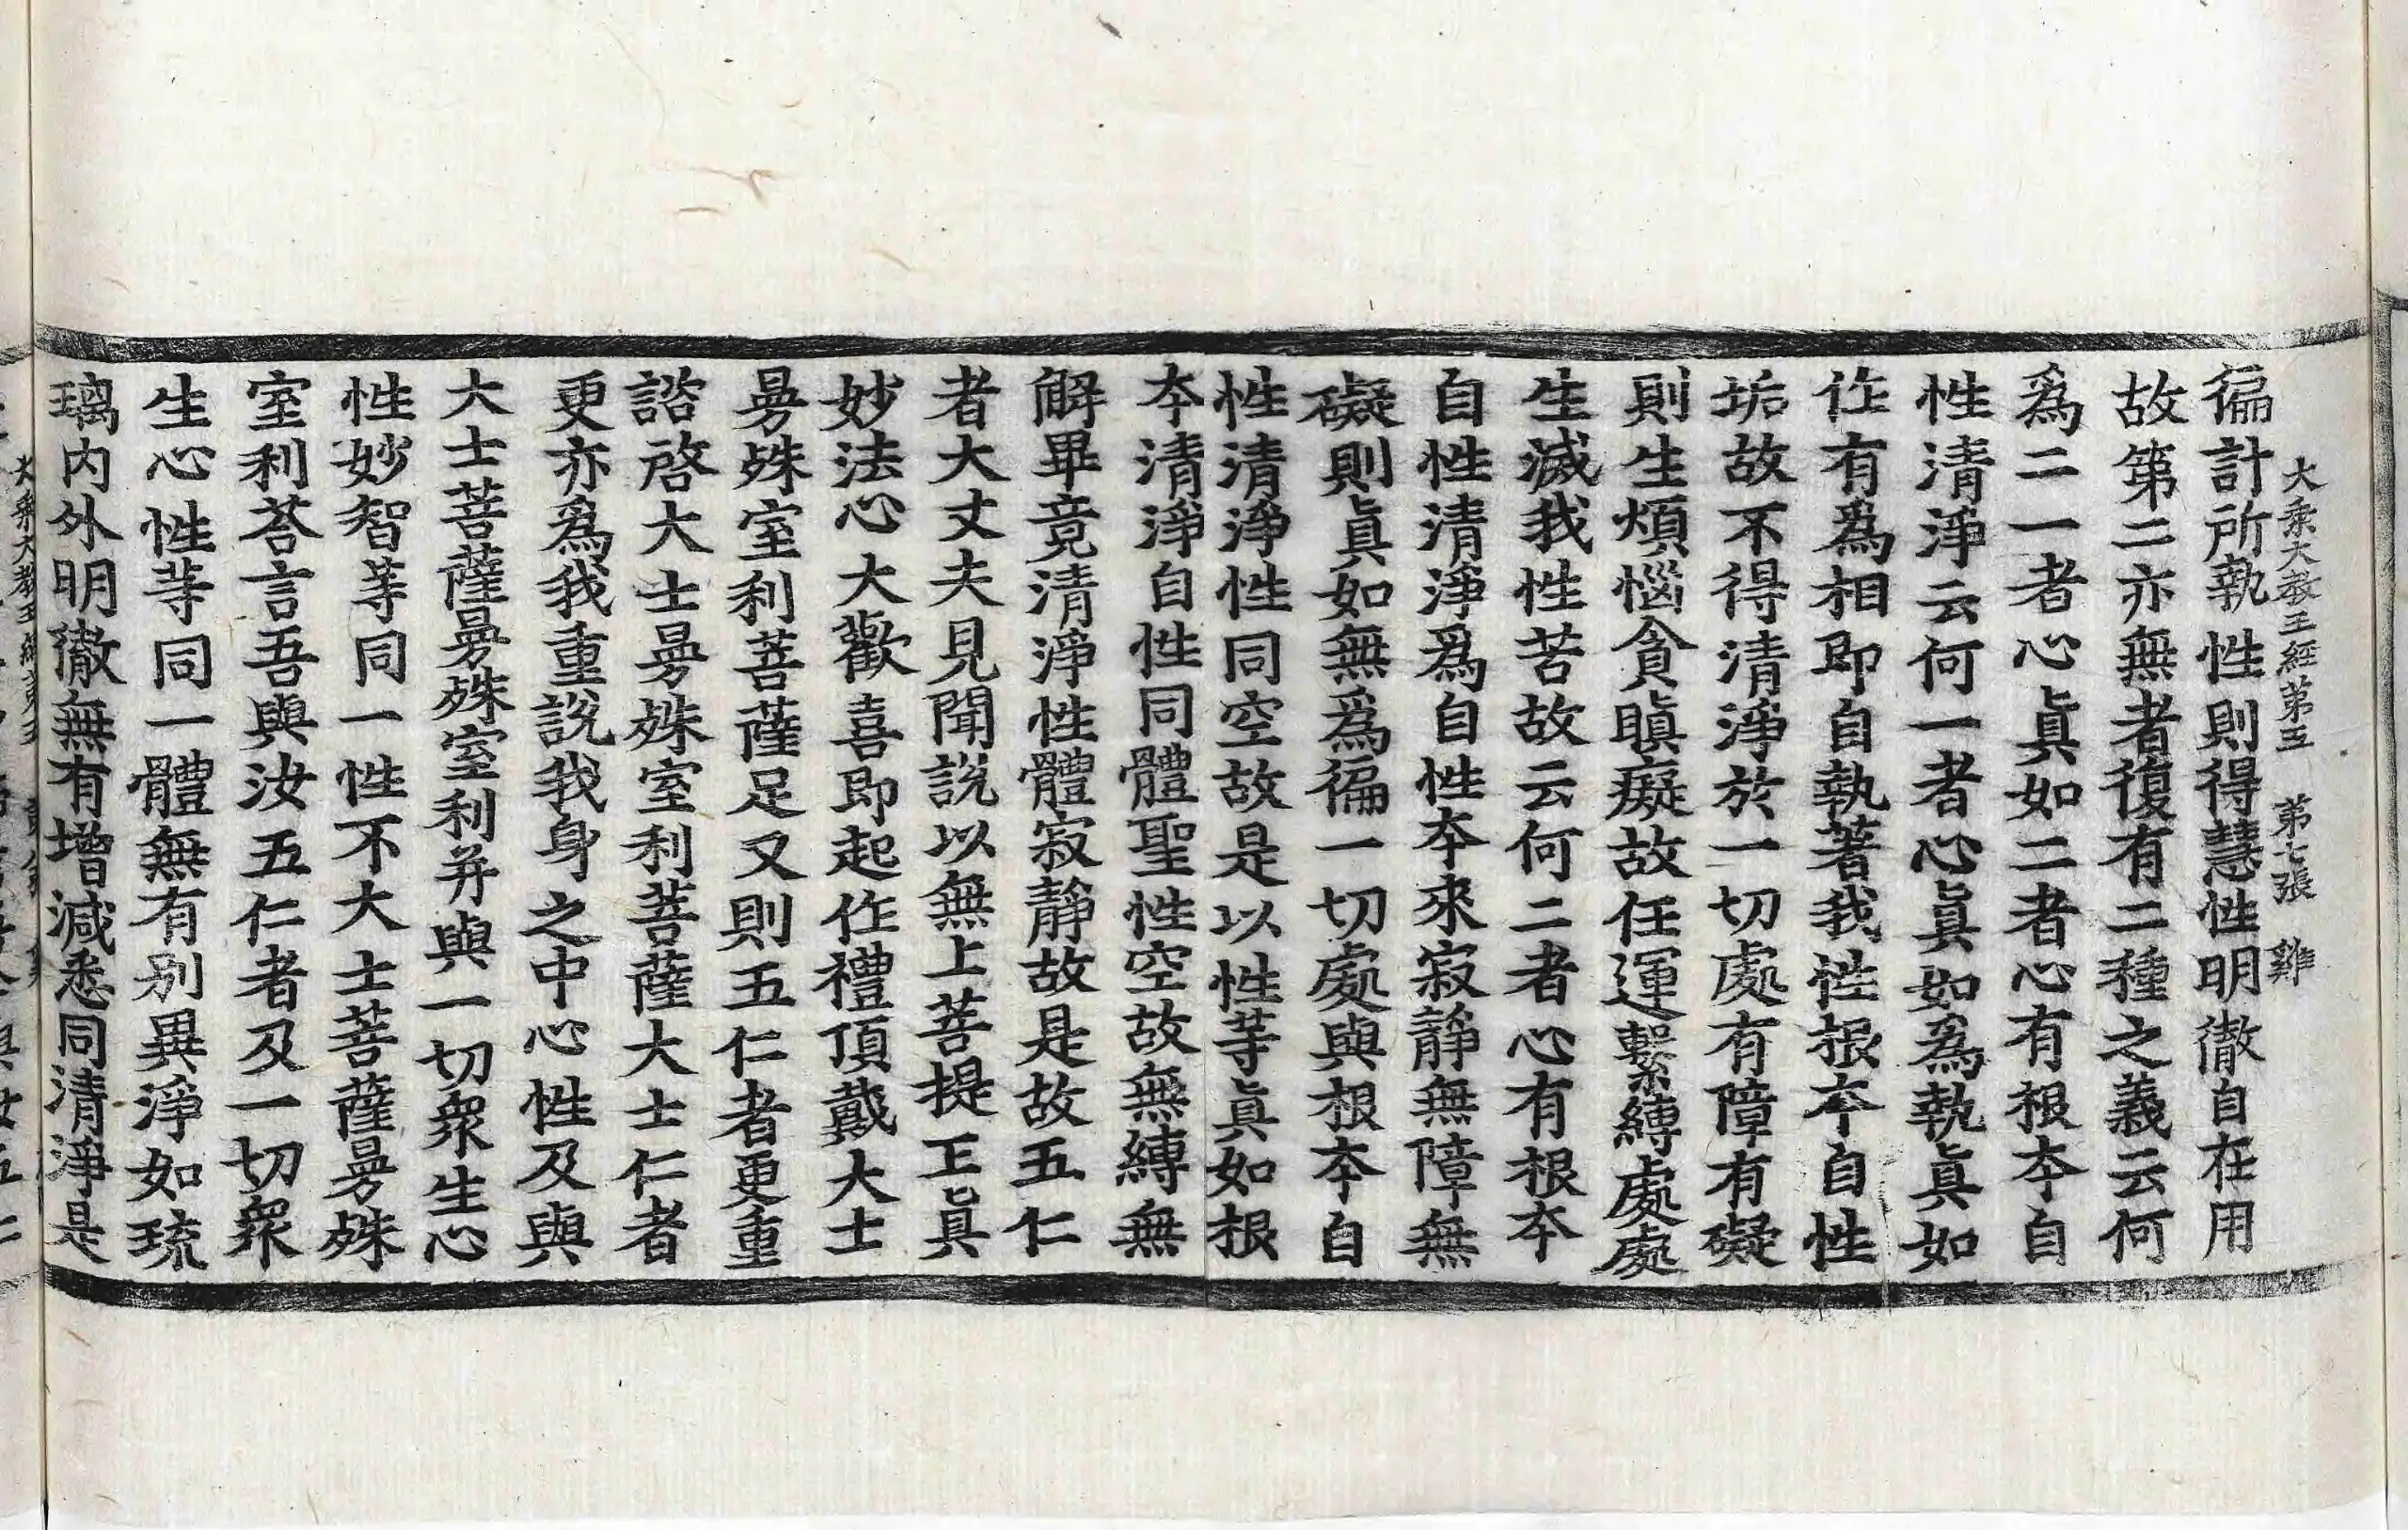 大乘大教王經第五 第七張 雞
徧計所執性則得慧性明徹自在用
故第二亦無者復有二種之義云何
爲二一者心眞如二者心有根本自
性清淨云何一者心眞如爲執眞如
作有爲相即自執著我性根本自性
垢故不得清淨於一切處有障有礙
則生煩惱貪瞋癡故任運繫縛處處
生滅我性苦故云何二者心有根本
自性清淨爲自性本來寂靜無障無
礙則眞如無爲徧一切處與根本自
性清淨性同空故是以性等眞如根
本清淨自性同體聖性空故無縛無
解畢竟清淨性體寂靜故是故五仁
者大丈夫見聞說以無上菩提正眞
妙法心大歡喜即起作禮頂戴大士
曼殊室利菩薩足又則五仁者更重
諮啓大士曼殊室利菩薩大士仁者
更亦爲我重說我身之中心性及與
大士菩薩曼殊室利并與一切衆生心
性妙智等同一性不大士菩薩曼殊
室利荅言吾與汝五仁者及一切衆
生心性等同一體無有别異淨如琉
璃内外明徹無有增減悉同清淨是
大乘大教王經第五